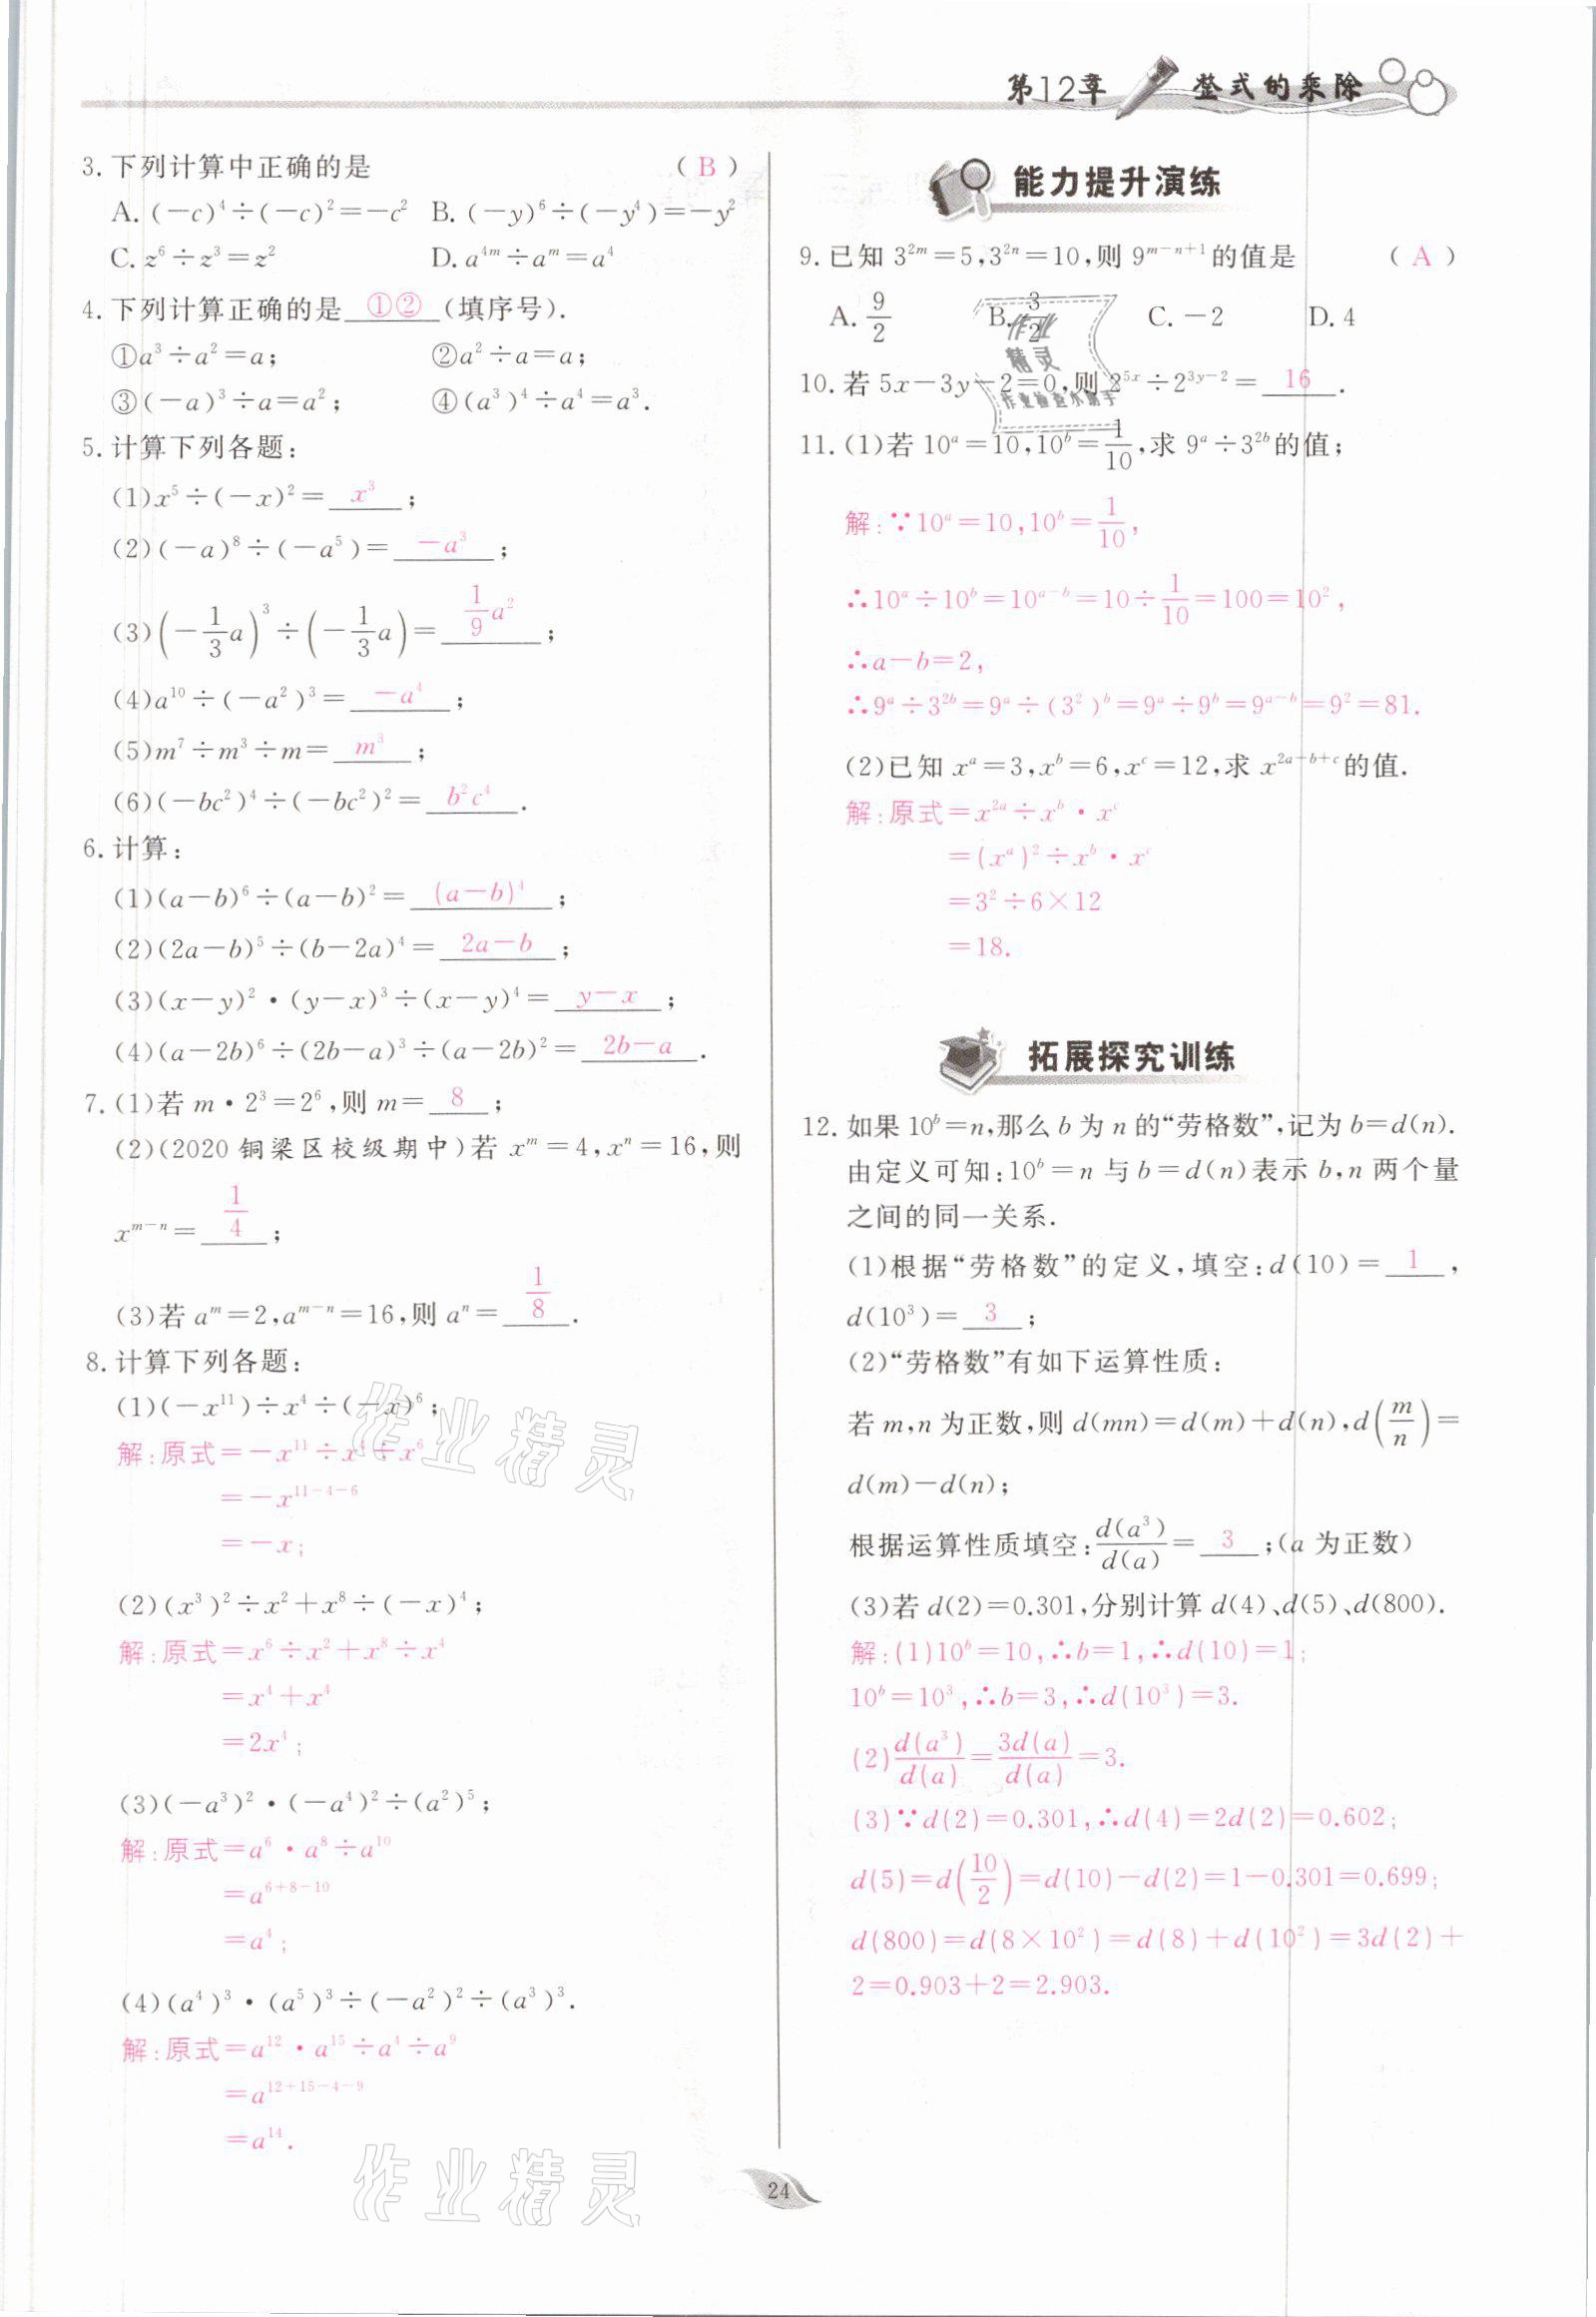 第12章 整式的乘除
3. 下列计算中正确的是 ( B )
A. (－c)⁴÷(－c)²=－c² B. (－y)⁶÷(－y⁴)=－y²
C. z⁶÷z³=z² D. a⁴ᵐ÷aᵐ=a⁴
4. 下列计算正确的是 ①② (填序号).
①a³÷a²=a; ②a²÷a=a;
③(－a)³÷a=a²; ④(a³)⁴÷a⁴=a³.
5. 计算下列各题:
(1)x⁵÷(－x)²= x³ ;
(2)(－a)⁸÷(－a⁵)= －a³ ;
(3)(－1/3 a)³÷(－1/3 a)= 1/9 a² ;
(4)a¹⁰÷(－a²)³= －a⁴ ;
(5)m⁷÷m³÷m= m³ ;
(6)(－bc²)⁴÷(－bc²)²= b²c⁴ .
6. 计算:
(1)(a－b)⁶÷(a－b)²= (a－b)⁴ ;
(2)(2a－b)⁵÷(b－2a)⁴= 2a－b ;
(3)(x－y)²·(y－x)³÷(x－y)⁴= y－x ;
(4)(a－2b)⁶÷(2b－a)³÷(a－2b)²= 2b－a .
7. (1)若 m·2³=2⁶,则 m= 8 ;
(2)(2020 铜梁区校级期中)若 xᵐ=4,xⁿ=16,则
xᵐ⁻ⁿ= 1/4 ;
(3)若 aᵐ=2,aᵐ⁻ⁿ=16,则 aⁿ= 1/8 .
8. 计算下列各题:
(1)(－x¹¹)÷x⁴÷(－x)⁶;
解:原式=－x¹¹÷x⁴÷x⁶
=－x¹¹⁻⁴⁻⁶
=－x;
(2)(x³)²÷x²+x⁸÷(－x)⁴;
解:原式=x⁶÷x²+x⁸÷x⁴
=x⁴+x⁴
=2x⁴;
(3)(－a³)²·(－a⁴)²÷(a²)⁵;
解:原式=a⁶·a⁸÷a¹⁰
=a⁶⁺⁸⁻¹⁰
=a⁴;
(4)(a⁴)³·(a⁵)³÷(－a²)²÷(a³)³.
解:原式=a¹²·a¹⁵÷a⁴÷a⁹
=a¹²⁺¹⁵⁻⁴⁻⁹
=a¹⁴.
能力提升演练
9. 已知 3²ᵐ=5,3²ⁿ=10,则 9ᵐ⁻ⁿ⁺¹的值是 ( A )
A. 9/2 B. 3/2 C. －2 D. 4
10. 若 5x－3y－2=0,则 2⁵ˣ÷2³ʸ⁻²= 16 .
11. (1)若 10ᵃ=10,10ᵇ=1/10,求 9ᵃ÷3²ᵇ的值;
解:∵10ᵃ=10,10ᵇ=1/10,
∴10ᵃ÷10ᵇ=10ᵃ⁻ᵇ=10÷1/10=100=10²,
∴a－b=2,
∴9ᵃ÷3²ᵇ=9ᵃ÷(3²)ᵇ=9ᵃ÷9ᵇ=9ᵃ⁻ᵇ=9²=81.
(2)已知 xᵃ=3,xᵇ=6,xᶜ=12,求 x²ᵃ⁻ᵇ⁺ᶜ的值.
解:原式=x²ᵃ÷xᵇ·xᶜ
=(xᵃ)²÷xᵇ·xᶜ
=3²÷6×12
=18.
拓展探究训练
12. 如果 10ᵇ=n,那么 b 为 n 的“劳格数”,记为 b=d(n).
由定义可知:10ᵇ=n 与 b=d(n)表示 b,n 两个量
之间的同一关系.
(1)根据“劳格数”的定义,填空:d(10)= 1 ,
d(10³)= 3 ;
(2)“劳格数”有如下运算性质:
若 m,n 为正数,则 d(mn)=d(m)+d(n),d(m/n)=
d(m)－d(n);
根据运算性质填空:d(a³)/d(a)= 3 ;(a 为正数)
(3)若 d(2)=0.301,分别计算 d(4)、d(5)、d(800).
解:(1)10ᵇ=10,∴b=1,∴d(10)=1;
10ᵇ=10³,∴b=3,∴d(10³)=3.
(2)d(a³)/d(a)=3d(a)/d(a)=3.
(3)∵d(2)=0.301,∴d(4)=2d(2)=0.602;
d(5)=d(10/2)=d(10)－d(2)=1－0.301=0.699;
d(800)=d(8×10²)=d(8)+d(10²)=3d(2)+
2=0.903+2=2.903.
作业精灵
作业检查小助手
作业精灵
作业精灵
24